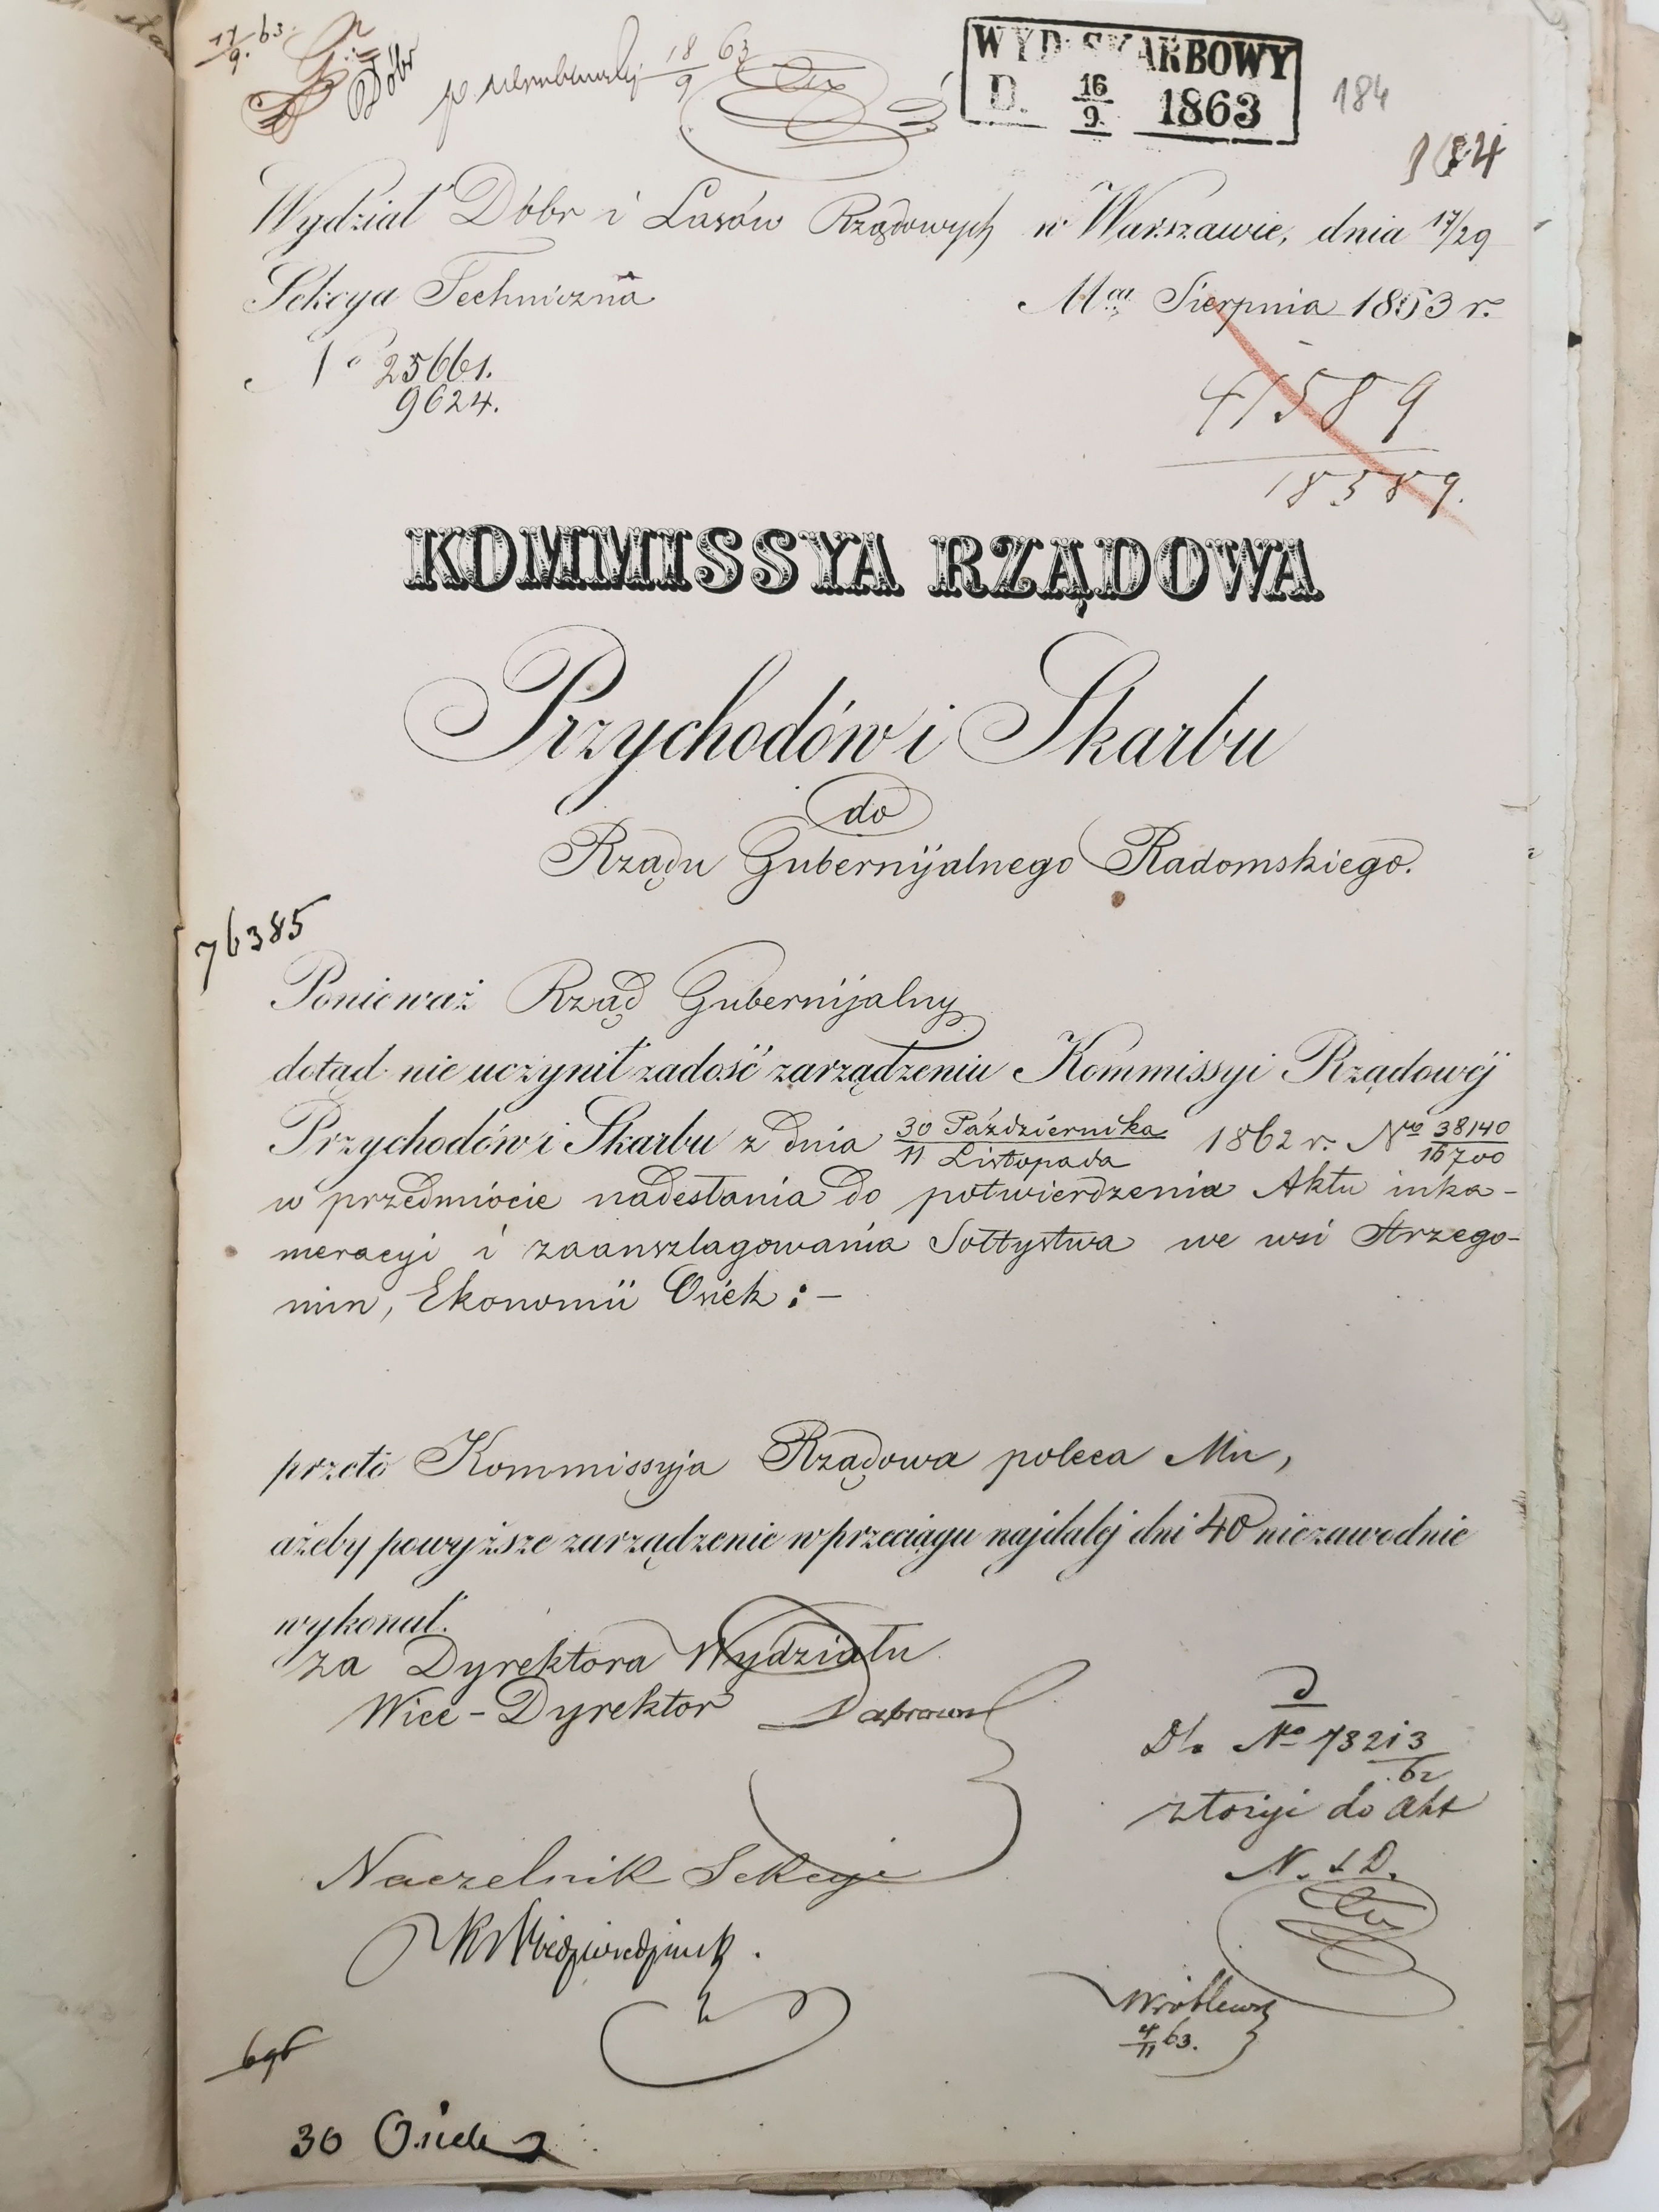 17/9 63.
Dóbr
18/9 63
WYD: SKARBOWY
D. 16/9. 1863
184
184
Wydział Dóbr i Lasów Rządowych
w Warszawie, dnia 17/29
Sekcya Techniczna
Mca Sierpnia 1863 r.
No 25661.
9624.
41589
18389.
KOMMISSYA RZĄDOWA
Przychodów i Skarbu
do
Rządu Gubernijalnego Radomskiego.
76385
Ponieważ Rząd Gubernijalny
dotąd nie uczynił zadość zarządzeniu Kommissyi Rządowéj
Przychodów i Skarbu z dnia 30 Października / 11 Listopada 1862 r. Nro 38140/16700
w przedmiocie nadesłania do potwierdzenia Aktu inka-
meracyi i zaanszlagowania Sołtystwa we wsi Strzego-
min, Ekonomii Osiek: -
przeto Kommissyja Rządowa poleca Mu,
ażeby powyższe zarządzenie w przeciągu najdalej dni 40 niezawodnie
wykonał.
za Dyrektora Wydziału
Wice-Dyrektor
Dl. No 73213/62
złożyć do akt
N. S. D.
Naczelnik Sekcyi
4/11 63.
696
30 Osiek